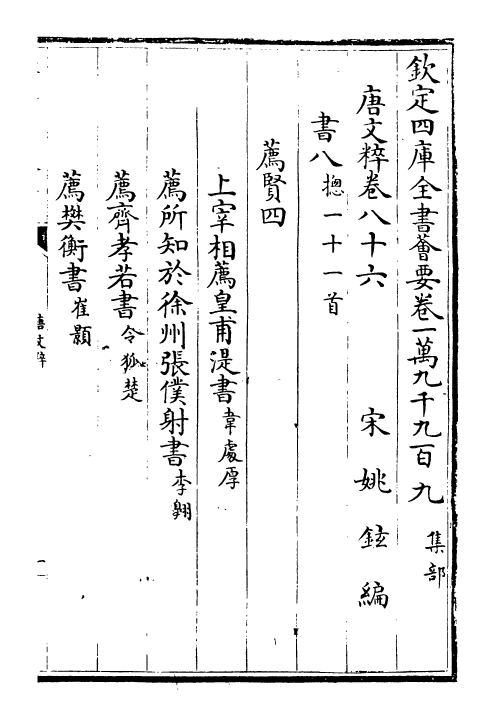 欽定四庫全書薈要卷一萬九千九百九 集部
唐文粹卷八十六 宋 姚鉉編
書八摠一十一首
薦賢四
上宰相薦皇甫湜書韋處厚
薦所知於徐州張僕射書李翱
薦齊孝若書令狐楚
薦樊衡書崔顥
唐文粹
一